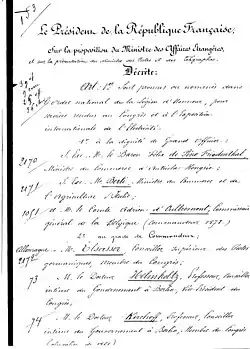 153
Le Président de la République Française,
Sur la proposition du Ministre des Affaires Etrangères,
et sur la présentation du ministre des Postes et des Télégraphes.
Décrète:
Art. 1er Sont promus ou nommés dans
l'ordre national de la Légion d'Honneur, pour
services rendus au Congrès et à l'Exposition
internationale de l'Electricité:
1° à la dignité de Grand Officier:
2170 S. Exc. M. le Baron Felix de Pino Friedenthal
Ministre du Commerce d'Autriche Hongrie;
2171 S. Exc. M. Berti, Ministre du Commerce et de
l'Agriculture d'Italie;
M. le Comte Adrien d'Oultremont, Commissaire
général de la Belgique (Commandeur 1878)
2° au grade de Commandeur:
Allemagne M. Elsasser, Conseiller supérieur des Postes
2172 germaniques, membre du Congrès;
73 M. le Docteur Helmholtz, Professeur, Conseiller
intime du Gouvernement à Berlin, Vice Président du
Congrès;
74 M. le Docteur Kirchhoff, Professeur, Conseiller
intime du Gouvernement à Berlin, Membre du Congrès